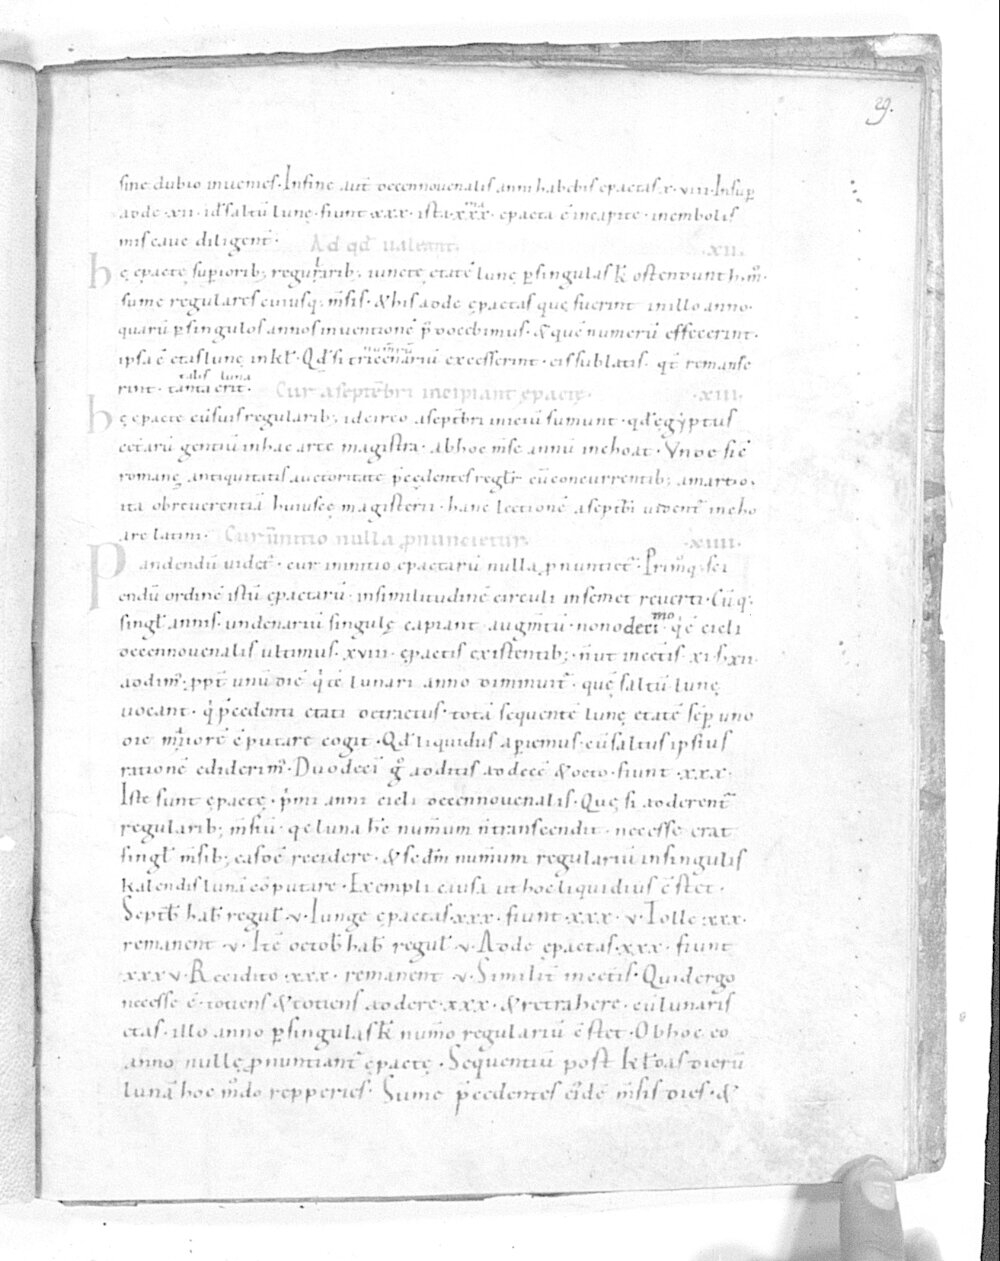 29.
sine dubio inuenies· Infine aut̄ decennouenalis anni habebis epactas x·viii· Insup̄
adde ·xii· id ē saltū lunę· fiunt xxx· ista xxx^ma epacta ē incapite· inembolis
mis caue diligent̄· Ad qđ ualeant· ·xii·
hę epactę superiorib; regularib; iunctę etatē lunę ꝑsingulas k̄ ostendunt h· mͦ·
sume regulares cuiusq; m̄sis· & his adde ępactas quę fuerint inillo anno·
quarū ꝑsingulos annos inuentionē p̄docebimus· & quē numerū effecerint·
ipsa ē etas lunę inkł· Qđ si tricenariū numerū excesserint· eis sublatis· qđ remanse
rint· talis luna tanta erit· Cur aseptēbri incipiant ępactę· ·xiii·
hę epacte cū suis regularib; idcirco aseptēbri iniciū sumunt· qđ ęgẏptus
cet̄arū gentiū inhac arte magistra· abhoc m̄se annū inchoat· Vnde sic̄
romanę antiquitatis auctoritate p̄cędentes regłr cū concurrentib; amartio·
ita obreuerentiā huius cę magisterii· hanc lectionē aseptēbri uidentˉ incho
are latini· Cur īnitio nulla ꝓnuncietur· ·xiiii·
Pandendū uidetˉ· cur ininitio epactarū nulla ꝓnuntietˉ· Primūq; sci
endū ordinē istū epactarū· insimilitudinē circuli insemet reuerti· Cū q;
singlˉ annis· undenariū singulę capiant augm̄tū· nonodeci^mo· q̇ ē cicli
decennouenalis ultimus· xviii· ępactis existentib; n̄ ut incęteris xi· s; xii·
addimˉ· ppt̄ unū diē q̇ ē lunari anno diminuitˉ· quę saltū lunę
uocant· q̇ p̄cedenti etati detractus· totā sequentē lunę etatē sēp uno
die maiorē c̄putare cogit· Qđ liquidus aperiemus· cū saltus ipsius
rationē ediderimˉ· Duodeci gͦ additis addece & octo· fiunt ·xxx·
Iste sunt ępactę· p̄mi anni cicli decennouenalis· Quę si adderentˉ
regularib; m̄siū· qa luna hc̄ numerum n̄ transcendit· necesse erat
singlˉ m̄sib; easdē recidere· & sedm̄ numerum regulariū insingulis
kalendis lunā cōputare· Exempli causa ut hoc liquidius c̄stet·
Septb̄ hab̄ regul̄ ·v· Iunge epactas xxx· fiunt ·xxx·v· Tolle xxx·
remanent ·v· Itē octob̄ hab̄ regul̄ ·v· Adde ępactas xxx· fiunt
xxxv· Recidito ·xxx· remanent ·v· Similit̄ incęteris· Quid ergo
necesse ē· totiens & totiens addere· xxx· & retrahere· cū lunaris
etas· illo anno ꝑsingulas k̄ num̄o regulariū c̄stet· Obhoc eo
anno nullę ꝓnuntiantˉ ępactę· Sequentiū post kłdas dierū
lunā hoc mͦdo repperies· Sume p̄cedentes eidē m̄sis dies· &